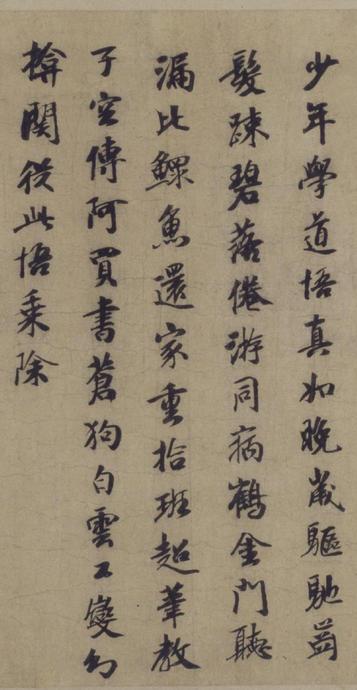 少年學道悟真如晚歲驅馳齒
髮疎碧落倦游同病鶴金門聽
漏比鰥魚還家重拾班超筆教
子空傳阿買書蒼狗白雲工變幻
揜関從此悟乘除